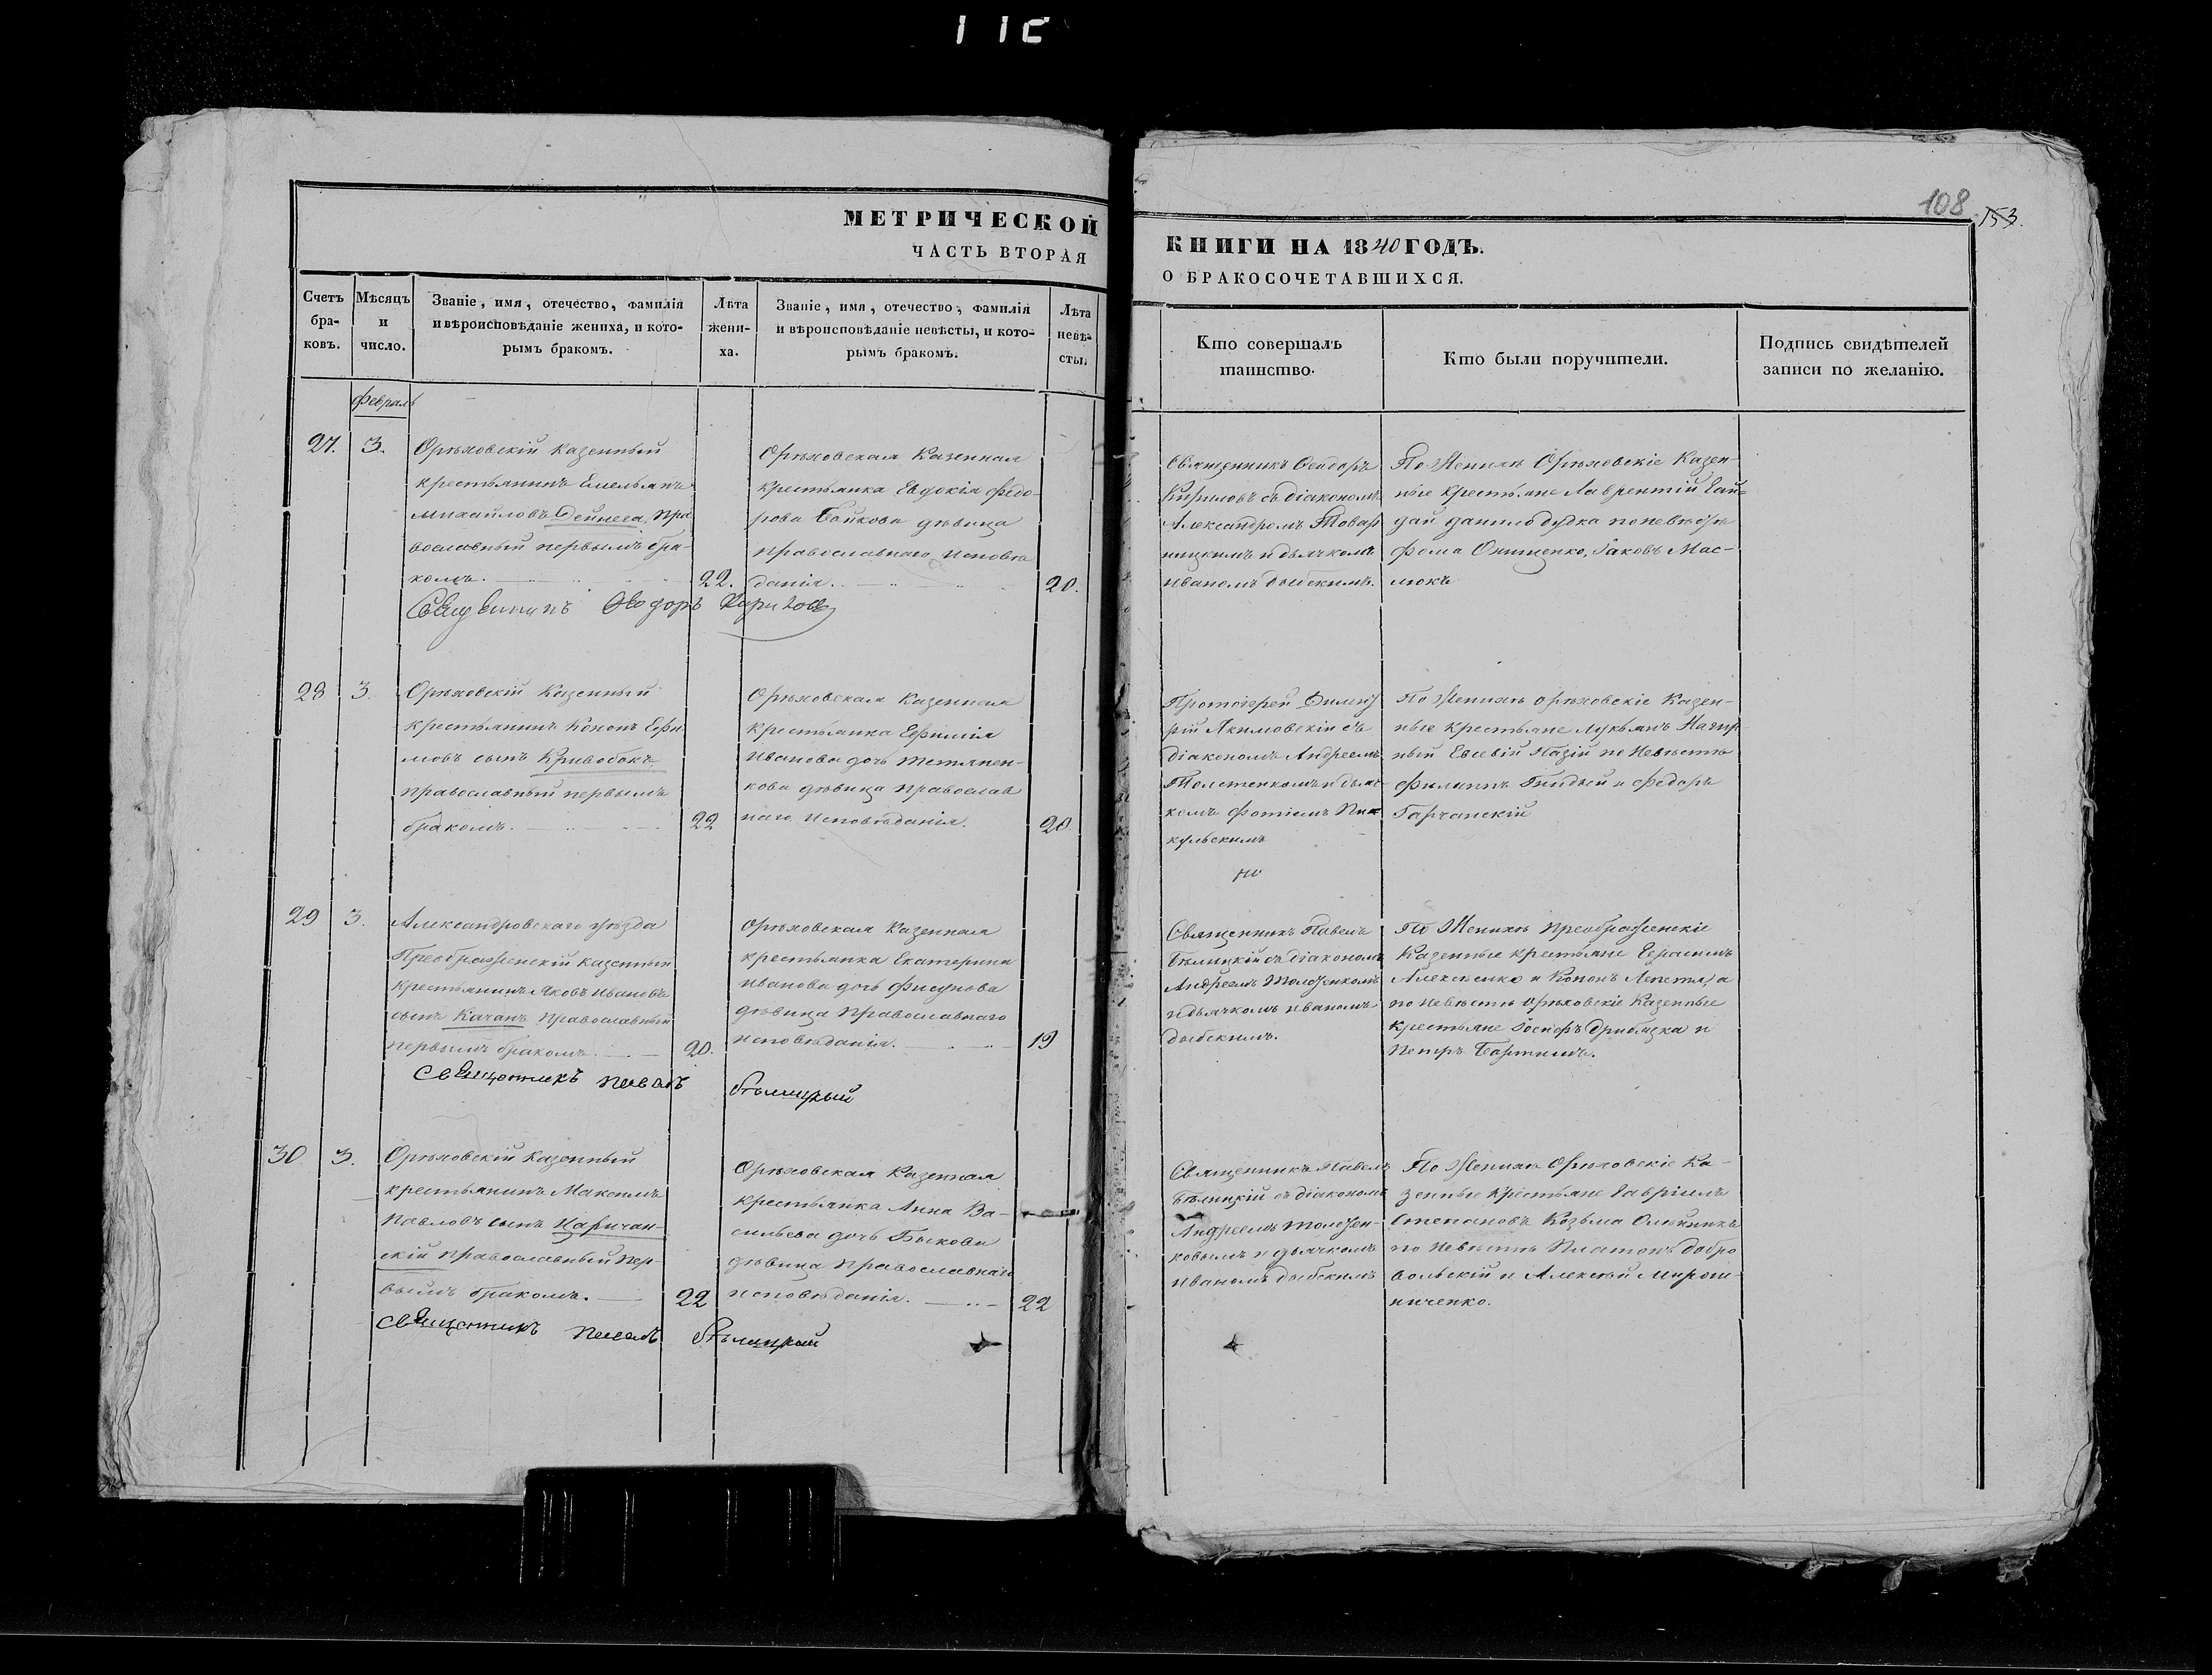 112
108
153.
МЕТРИЧЕСКОЙ
ЧАСТЬ ВТОРАЯ
КНИГИ НА 1840 ГОДЪ.
О БРАКОСОЧЕТАВШИХСЯ.
Счетъ бра-ковъ.
Мѣсяцъ и число.
Званіе, имя, отечество, фамилія
и вѣроисповѣданіе жениха, и кото-
рымъ бракомъ.
Лѣта жени-ха.
Званіе, имя, отечество, фамилія
и вѣроисповѣданіе невѣсты, и кото-
рымъ бракомъ.
Лѣта невѣ-сты.
Кто совершалъ
таинство.
Кто были поручители.
Подпись свидѣтелей
записи по желанію.
Февраль
27. 3.
Орѣховскій казенный
крестьянинъ Емельянъ
Михайловъ Дейнега, пра
вославный первымъ бра-
комъ.
22.
Орѣховская Казенная
крестьянка Евдокія Федо-
рова Бойкова дѣвица
православнаго исповѣ
данія.
20.
Священникъ Феодоръ
Кириловъ съ діакономъ
Александромъ Товар
ницкимъ и дьячкомъ
Иваномъ Дыбскимъ.
По Женихѣ Орѣховскіе Казен-
ные крестьяне Лаврентій Гай-
дай Данило Дудка по невѣстѣ
Фома Онищенко, Яковъ Мас-
люкъ
Священникъ Феодоръ Кириловъ
28 3.
Орѣховскій Казенный
крестьянинъ Кононъ Ефи
мовъ сынъ Кривобокъ
православный первымъ
бракомъ.
22
Орѣховская казенная
крестьянка Евфимія
Иванова дочь Тетянен-
кова дѣвица православ
наго исповѣданія.
20.
Протоіерей Димит
рій Якимовскій съ
діакономъ Андреемъ
кульскимъ
По Женихѣ Орѣховскіе Казен-
ные крестьяне Лукьянъ Нагир
ный Евсевій Назій по Невѣстѣ
Филиппъ Гнидый и Федоръ
Гарчанскій
29 3.
Александровскаго уѣзда
Преображенскій казенный
крестьянинъ Яковъ Ивановъ
сынъ Качанъ православный
первымъ бракомъ.
20.
Орѣховская казенная
крестьянка Екатерина
Иванова дочь Фисунова
дѣвица православнаго
исповѣданія.
19
Священникъ Павелъ
Бѣлицкій съ діакономъ
и дьячкомъ Иваномъ
Дыбскимъ.
По Женихѣ Преображенскіе
Казенные крестьяне Герасимъ
Алексѣенко и Кононъ Лепетя, а
по невѣстѣ Орѣховскіе Казенные
крестьяне Іосифъ Дрибязка и
Петръ Бартишъ.
Священникъ Павелъ Бѣлицкій
30 3.
Орѣховскій Казенный
крестьянинъ Максимъ
Павловъ сынъ Царичан-
скій православный пер-
вымъ бракомъ.
22
Орѣховская Казенная
крестьянка Анна Ва-
сильева дочь Быкова
дѣвица православнаго
исповѣданія.
22
Священникъ Павелъ
Бѣлицкій съ діакономъ
Андреемъ Толочен-
ковымъ и дьячкомъ
Иваномъ Дыбскимъ
По Женихѣ Орѣховскіе Ка-
зенные крестьяне Гавріилъ
Степановъ Козьма Олѣйникъ
по невѣстѣ Платонъ Добро
вольскій и Алексѣй Мирош-
ниченко.
Священникъ Павелъ Бѣлицкій